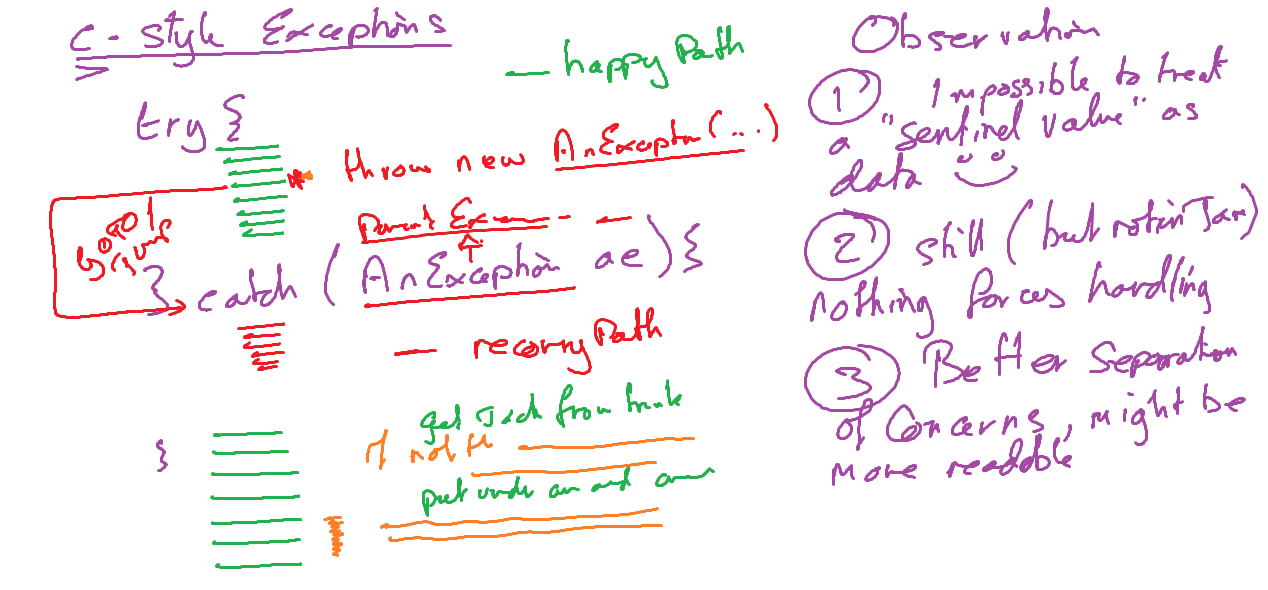 C-style Exceptions
— happy Path
try {
throw new AnExceptn(...)
Parent Ex
} catch (AnException ae) {
— recovry Path
get Jack from trunk
if not
put under an and
}
Observation
1 Impossible to treat
a "sentinel value" as
data
2 still (but not in Java)
nothing forces handling
3 Better Separation
of Concerns, might be
more readable